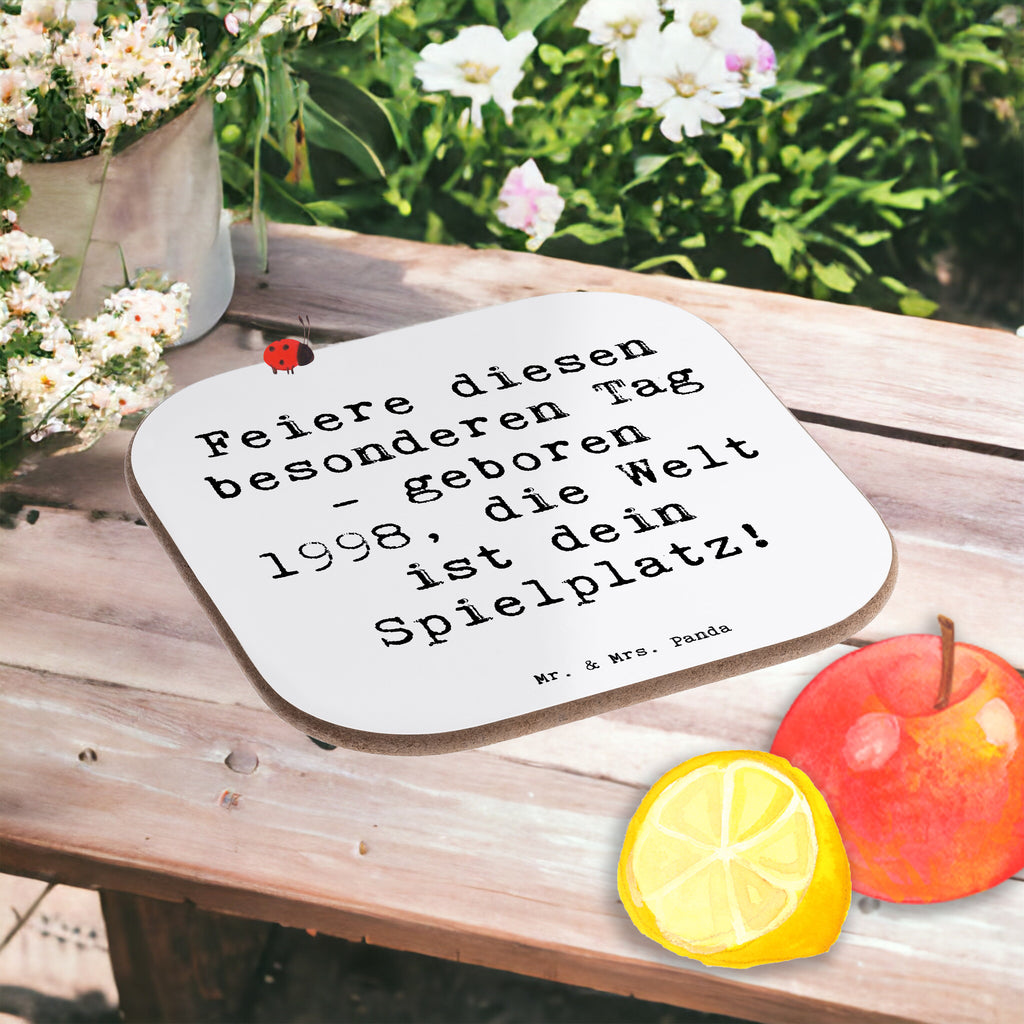 Feiere diesen
besonderen Tag
- geboren
1998, die Welt
ist dein
Spielplatz!
Mr. & Mrs. Panda